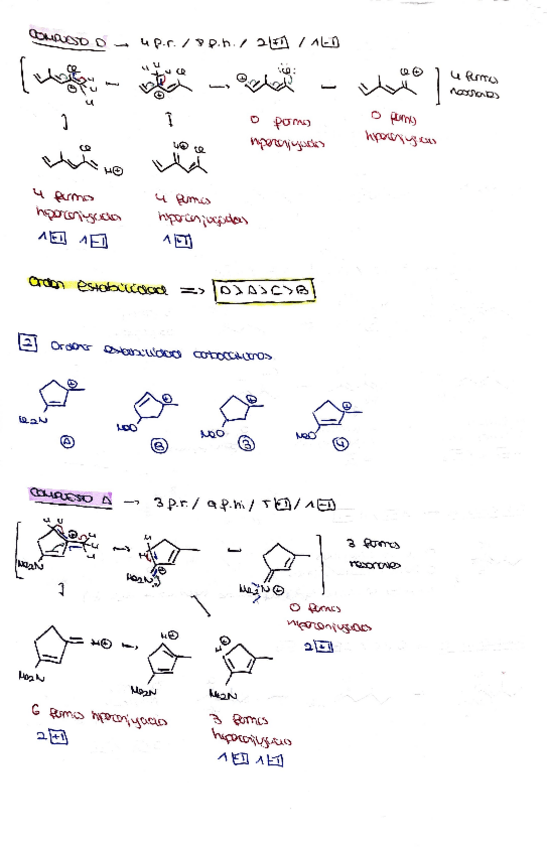 COMPUESTO D → 4 p.r. / 8 p.h. / 2 +I / 1 -I
4 formas
resonantes
0 formas
hiperconjugadas
0 formas
hiperconjugadas
4 formas
hiperconjugadas
1 +I 1 -I
4 formas
hiperconjugadas
1 +I
Orden estabilidad => D > A > C > B
2 Ordenar estabilidad carbocationes
Me2N
A
MeO
B
MeO
3
MeO
4
COMPUESTO A → 3 p.r. / 9 p.h. / 5 +I / 1 -I
Me2N
Me2N
Me2N
3 formas
resonantes
0 formas
hiperconjugadas
2 +I
Me2N
Me2N
Me2N
6 formas hiperconjugadas
2 +I
3 formas
hiperconjugadas
1 +I 1 -I